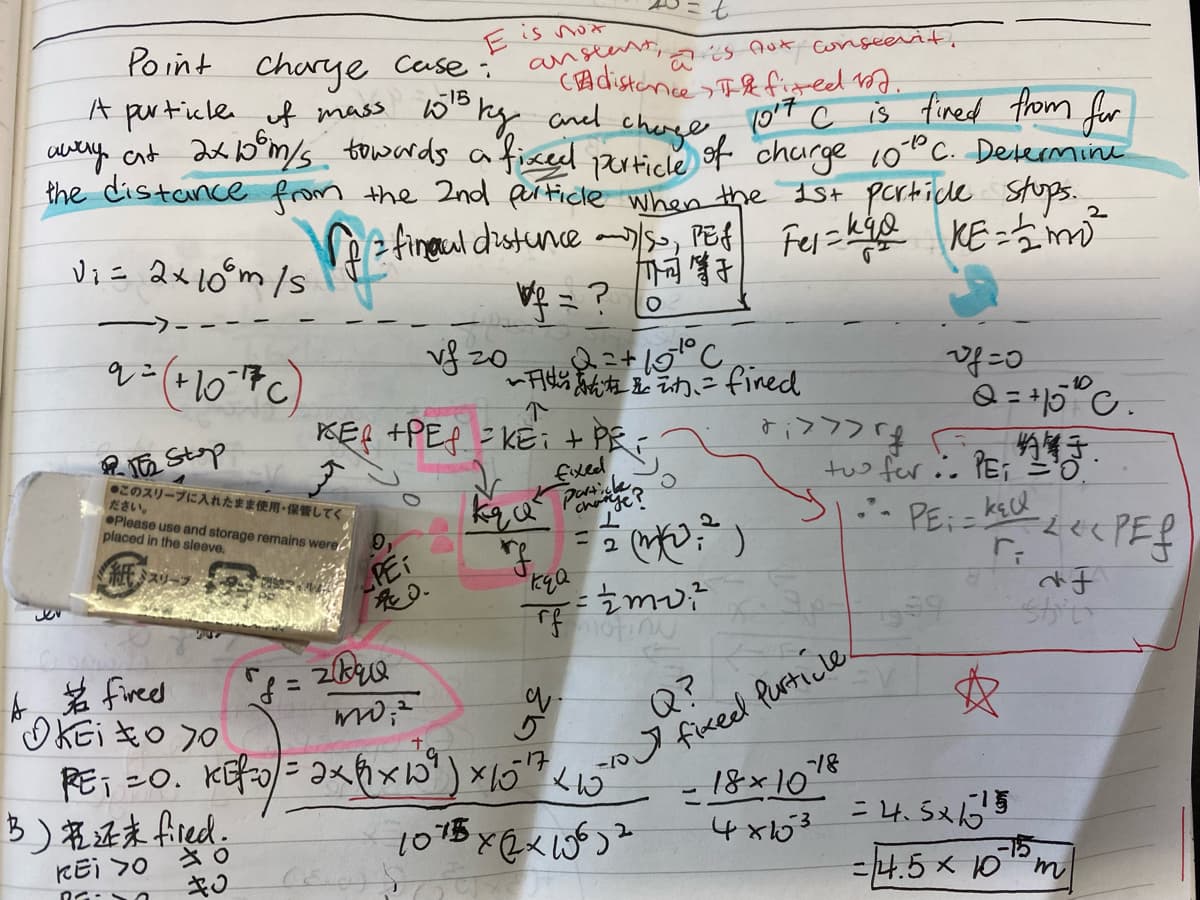 = t
E is not
constant, a is not constant.
(因distance,不是fixed的).
Point charge case:
A particle of mass 10⁻¹⁵ kg and charge 10⁻¹⁷ C is fired from far
away at 2x10⁶m/s towards a fixed particle of charge 10⁻¹⁰ C. Determine
the distance from the 2nd particle when the 1st particle stops.
rf = final distance → so, PEf
不可等于
0
Fel = kqQ/r²
KE = ½mv²
Vi = 2x10⁶m/s
Vf = ?
q = (+10⁻¹⁷C)
vf = 0
Q = +10⁻¹⁰ C
= fired
vf = 0
Q = +10⁻¹⁰ C.
KEf + PEf = KEi + PEi
0
0
ri >>> rf
too far ∴ PEi = 0.
约等于
∴ PEi = kqQ/ri <<< PEf
stop
kqQ/rf = ½(mvi²)
fixed
particle
charge?
kqQ/rf = ½mvi²
0,
PEi
是0.
●このスリーブに入れたまま使用・保管してく
ださい。
●Please use and storage remains were
placed in the sleeve.
紙 スリーブ
rf = 2kqQ/mvi²
A 若 fired
① KEi ≠0 >0
PEi =0. KEf=0
q.
Q?
fixed particle
= 2x(9x10⁹)x10⁻¹⁷x10⁻¹⁰ / 10⁻¹⁵x(2x10⁶)² = 18x10⁻¹⁸ / 4x10⁻³ = 4.5x10⁻¹⁵
= 4.5 x 10⁻¹⁵ m
B) 若还未 fired.
KEi >0 ≠0
≠0